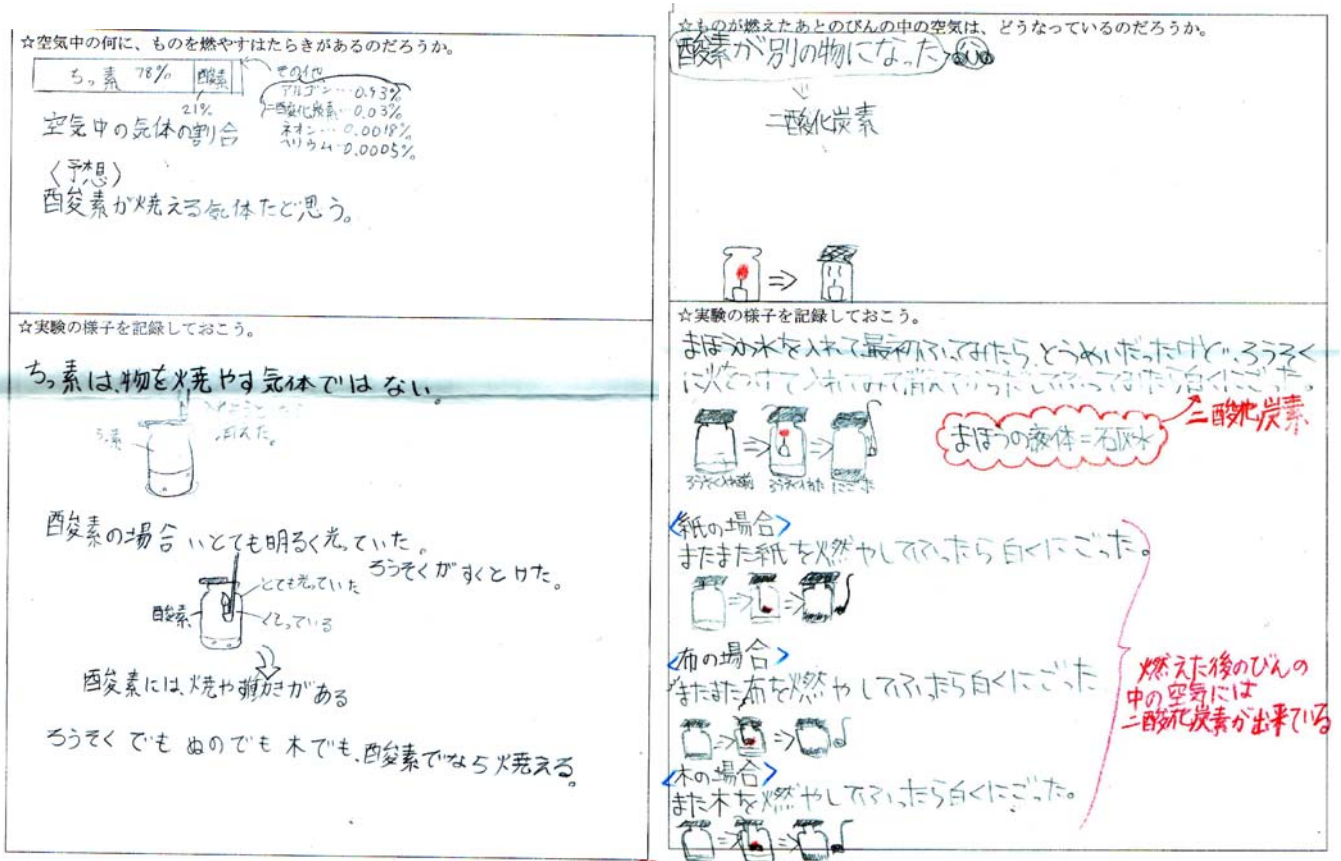 ☆空気中の何に、ものを燃やすはたらきがあるのだろうか。
ちっ素 78%
酸素
21%
その他
アルゴン…0.93%
二酸化炭素…0.03%
ネオン…0.0018%
ヘリウム…0.0005%
空気中の気体の割合
〈予想〉
酸素が焼える気体だと思う。
☆実験の様子を記録しておこう。
ちっ素は、物を焼やす気体ではない。
ちっ素
消えた。
酸素の場合、いとても明るく光っていた。
ろうそくがすくとけた。
とても光っていた
酸素
くもっている
酸素には、焼や働きがある
ろうそくでもぬのでも木でも、酸素でなら焼える。
☆ものが燃えたあとのびんの中の空気は、どうなっているのだろうか。
酸素が別の物になった
二酸化炭素
☆実験の様子を記録しておこう。
まほうの水を入れて最初ふってみたら、とうめいだったけど、ろうそく
に火をつけて入れてみて消えてからだしてふってみたら白くにごった。
二酸化炭素
まほうの液体=石灰水
ろうそく入れ前
ろうそく入れた
にごった
<紙の場合>
またまた紙を燃やしてふったら白くにごった。
<布の場合>
またまた布を燃やしてふったら白くにごった
<木の場合>
また木を燃やしてふったら白くにごった。
燃えた後のびんの
中の空気には
二酸化炭素が出来ている